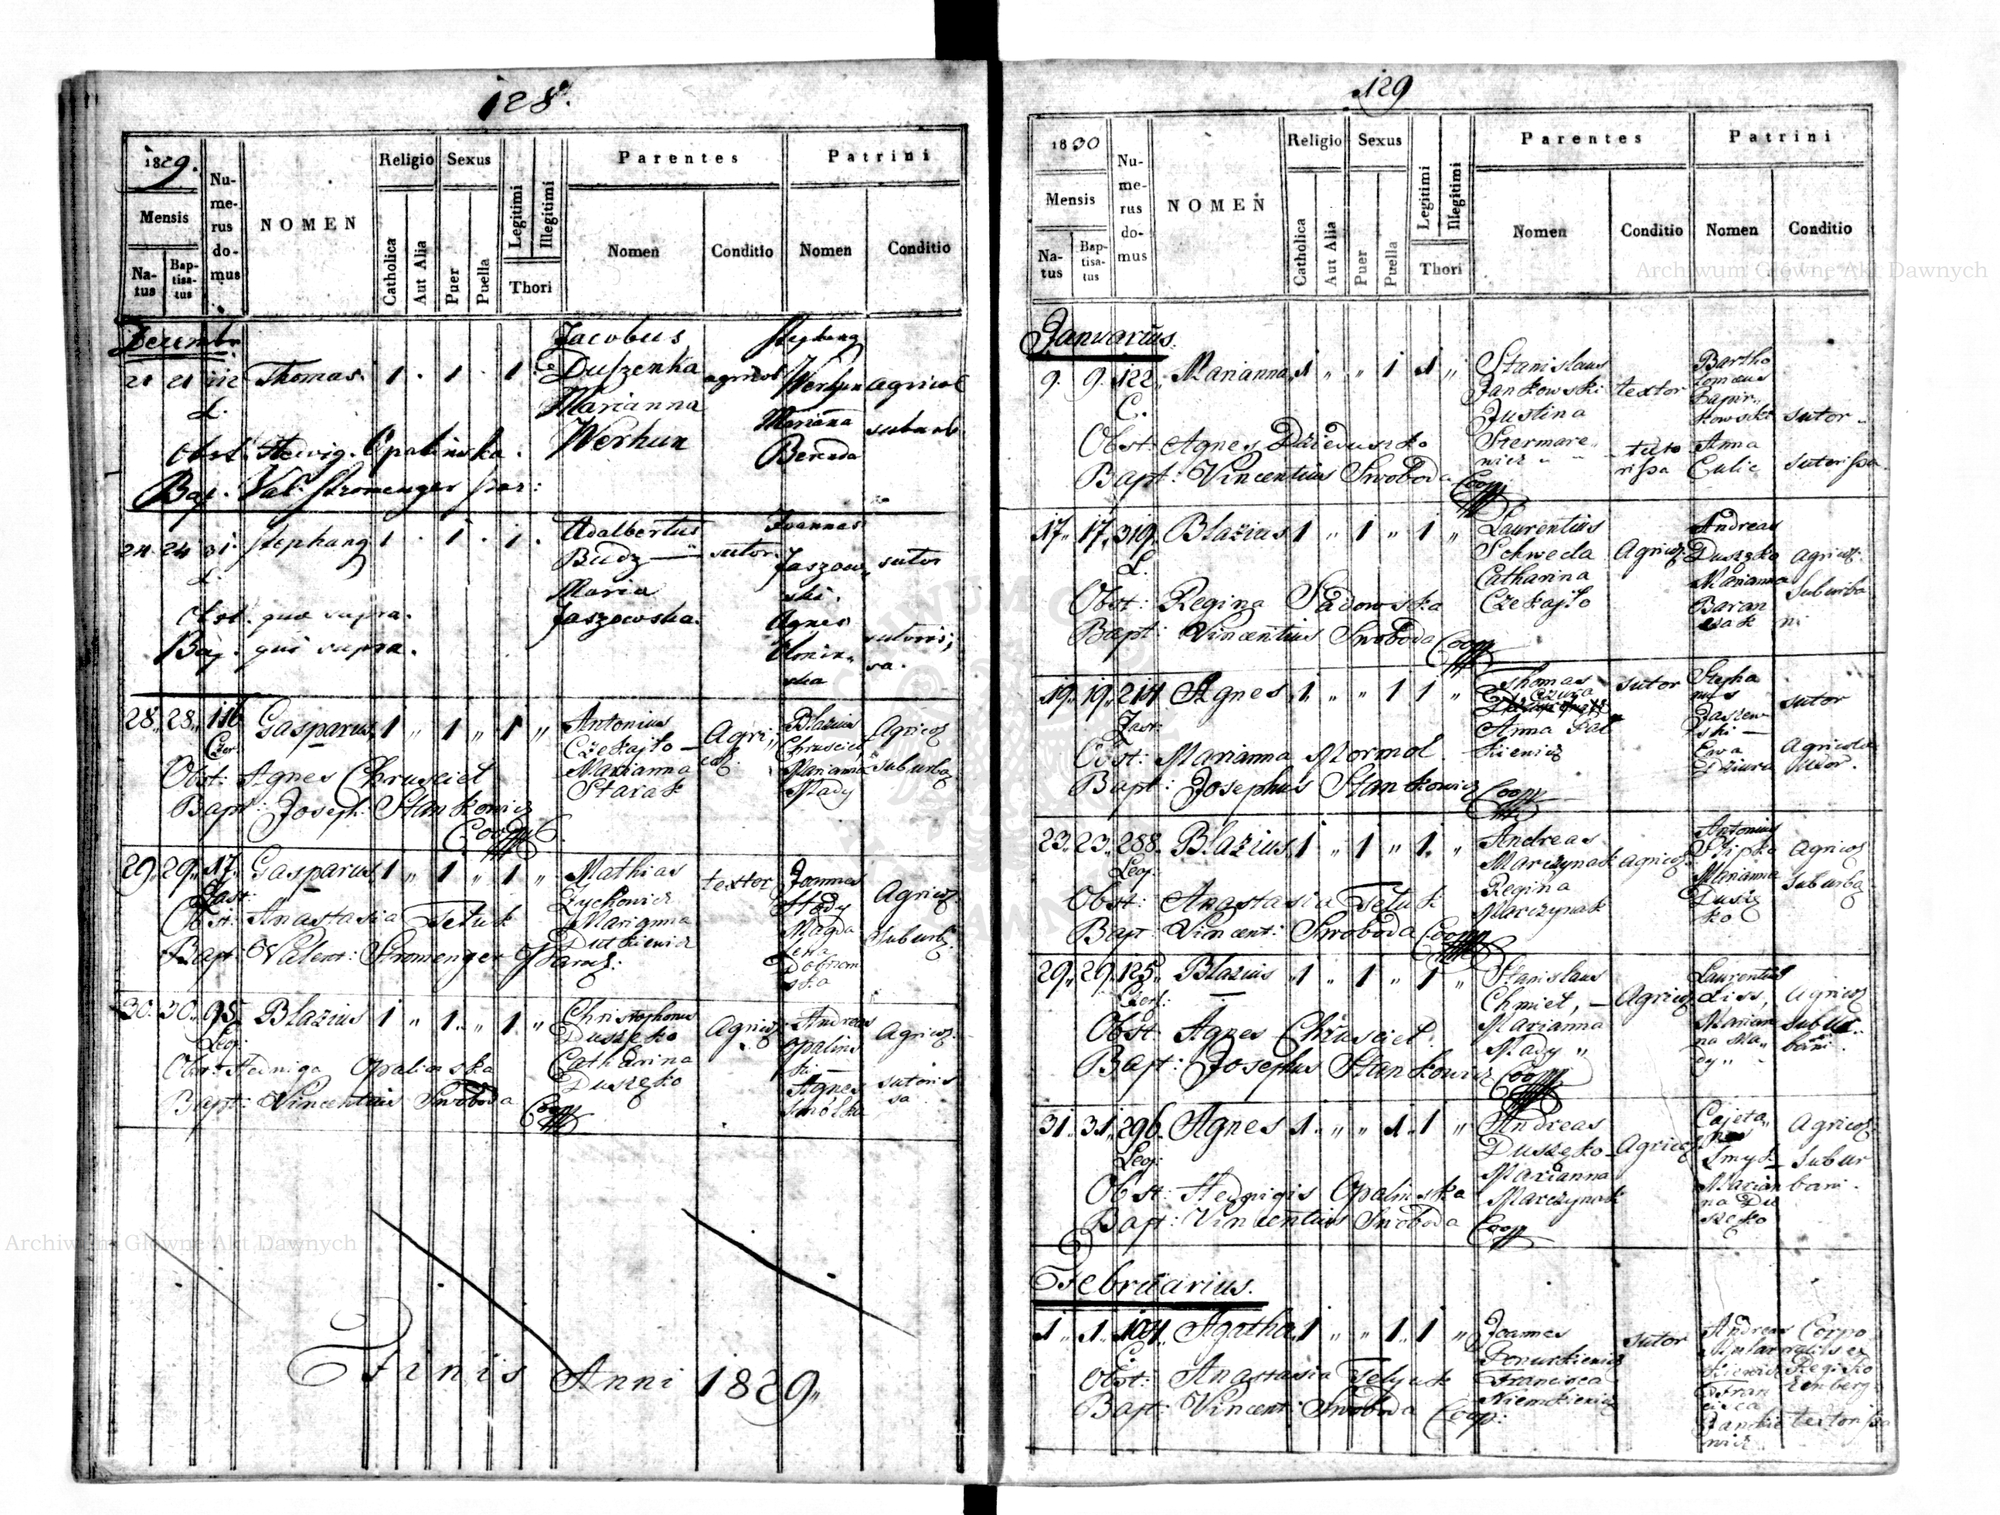 128.
1829.
Mensis
Natus
Baptisatus
Numerus domus
NOMEN
Religio
Catholica
Aut Alia
Sexus
Puer
Puella
Legitimi
Illegitimi
Thori
Parentes
Nomen
Conditio
Patrini
Nomen
Conditio
Decembr
21 21 112 Thomas. 1 . 1 . 1 Jacobus Duszenka agricol Stephang Werhun agricol
L. Marianna Werhun Mariana Bereda suburb.
Obst. Hedvig. Opalinska.
Bap. Val. Stromenger
24. 24 31. Stephang 1 . 1 . 1. Adalbertus Budz sutor. Joannes Jaszowski. sutor
L. Maria Jaszowska. Agnes
Obst. quae supra.
Bap. qui supra.
28 „ 28 „ 116 Gasparus 1 „ 1 „ 1 „ Antonius Czekajło Agricol. Blasius Chrusciel Agricol
Czer. Marianna Starak Marianna Mady Suburba
Obst: Agnes Chrusciel
Bapt: Joseph: Stankowicz
Coop
29. 29. 17. Gasparus 1 „ 1 „ 1 „ Mathias Zychowicz textor Joannes Agricol.
Zast: Marianna Dutkiewicz Magdalena Suburb.
Obst: Anastasia Tetuk
Bapt: Valent: Stromenger Paroch:
30. 30. 95. Blazius 1 „ 1 „ 1 „ Christophorus Duszeko Agricol Andreas Opalinski Agricol.
Leg: Catharina Duszeko Agnes Smolka sutorissa
Obst: Hedviga Opalinska
Bapt: Vincentius Swoboda Coop
Finis Anni 1829„
129
1830
Mensis
Natus
Baptisatus
Numerus domus
NOMEN
Religio
Catholica
Aut Alia
Sexus
Puer
Puella
Legitimi
Illegitimi
Thori
Parentes
Nomen
Conditio
Patrini
Nomen
Conditio
Januarius.
9. 9. 122. Marianna 1 „ „ 1 1 „ Stanislaus Jankowski textor Bartholomeus sutor
C. Justina textorissa Anna Culic sutorissa
Obst: Agnes
Bapt: Vincentius Swoboda Coop
17. 17. 319. Blazius 1 „ 1 „ 1 „ Laurentius Schweda Agricol Andreas Duszeko Agricol
L. Catharina Czekajło Marianna Suburbani
Obst: Regina Sadowska
Bapt: Vincentius Swoboda Coop
19. 19. 214 Agnes 1 „ „ 1 1 „ Thomas sutor Stephanus sutor
Zast: Anna Ewa Dziura
Obst: Marianna Mormol
Bapt: Josephus Stankowicz Coop
23. 23. 288. Blazius 1 „ 1 „ 1. „ Andreas Marczynak Agricol Antonius Agricol
Leg: Regina Marczynak Marianna Duszeko Suburba
Obst: Anastasia Tetuk
Bapt: Vincent: Swoboda Coop
29. 29. 125. Blazius 1 „ 1 „ 1 „ Stanislaus Chmiel, Agricol Laurentius Liss, Agricol
Czer: Marianna Mady „ Marianna Mady Suburbani
Obst: Agnes Chrusciel.
Bapt: Josephus Stankowicz Coop
31. 31. 296. Agnes 1. „ „ 1. 1 „ Andreas Duszeko Agricol Cajetanus Smyk Agricol
Leg: Marianna Marczynak Marianna Duszeko Suburbani.
Obst: Hedvigis Opalinska
Bapt: Vincentius Swoboda Coop
Februarius.
1 „ 1. 104. Agatha 1 „ „ 1. 1 „ Joannes sutor Andreas
Francisca Francisca textorissa
Obst: Anastasia Tetuk
Bapt: Vincent: Swoboda Coop:
Archiwum Główne Akt Dawnych
Archiwum Główne Akt Dawnych